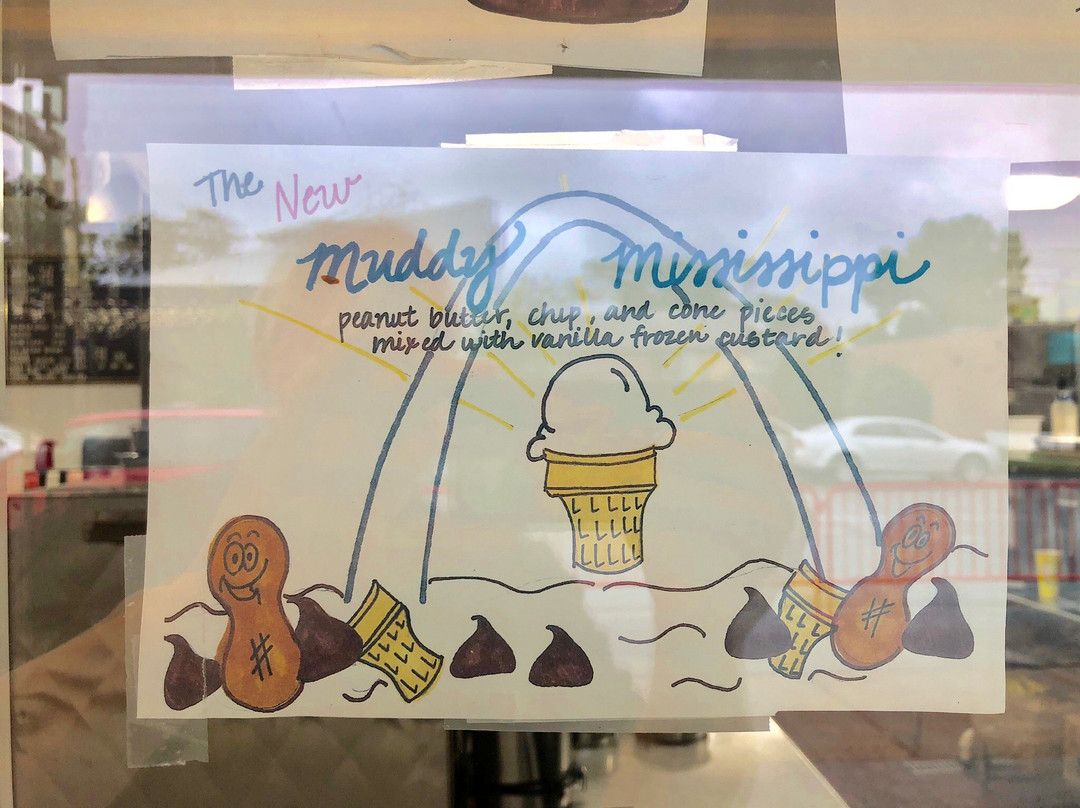 The New
Muddy Mississippi
peanut butter, chip, and cone pieces
mixed with vanilla frozen custard!
#
#